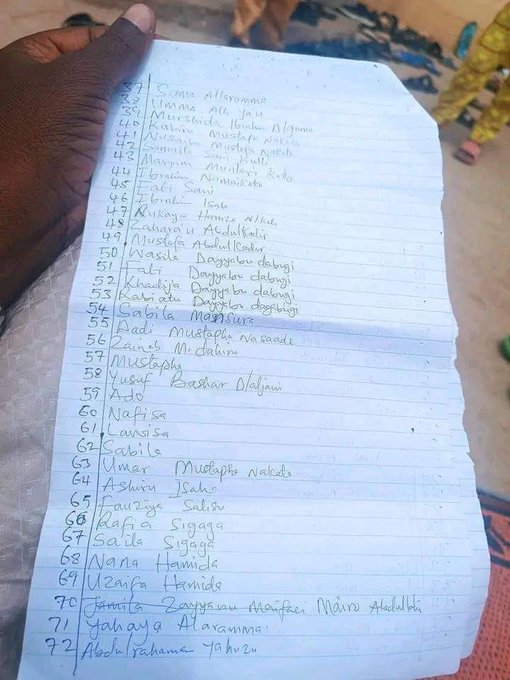 37 Sama Allaramma
38 Umma Ali Ya'u
39 Murshida Ibrahim Algoma
40 Kabiru Mustafa Nakote
41 Nusaiba Mustafa Nakoti
42 Sani
43 Maryam Muntari Koto
44 Ibrahim Namaikoko
45 Fati Sani
46 Ibrahim Isah
47 Rukaya Hamza
48 Zaharau Abdulkadir
49 Mustafa Abdulkadir
50 Wasila Dayyabu dabugi
51 Fati Dayyabu dabugi
52 Khadija Dayyabu dabugi
53 Rabiatu Dayyabu dayabugi
54 Sabila Mansura
55 Dadi Mustapha Nasaade
56 Zainab M. dahiru
57 Mustapha
58 Yusuf Bashar
59 Ado
60 Nafisa
61 Lawisa
62 Sabila
63 Umar Mustapha Nakote
64 Ashiru Isah
65 Fauziya Salisu
66 Rafia Sigaga
67 Saila Sigaga
68 Nana Hamida
69 Uzaifa Hamida
70 Jamila Zayyanu Maifaci Mairo
71 Yahaya Alaramma
72 Abdulrahaman Yahuzu